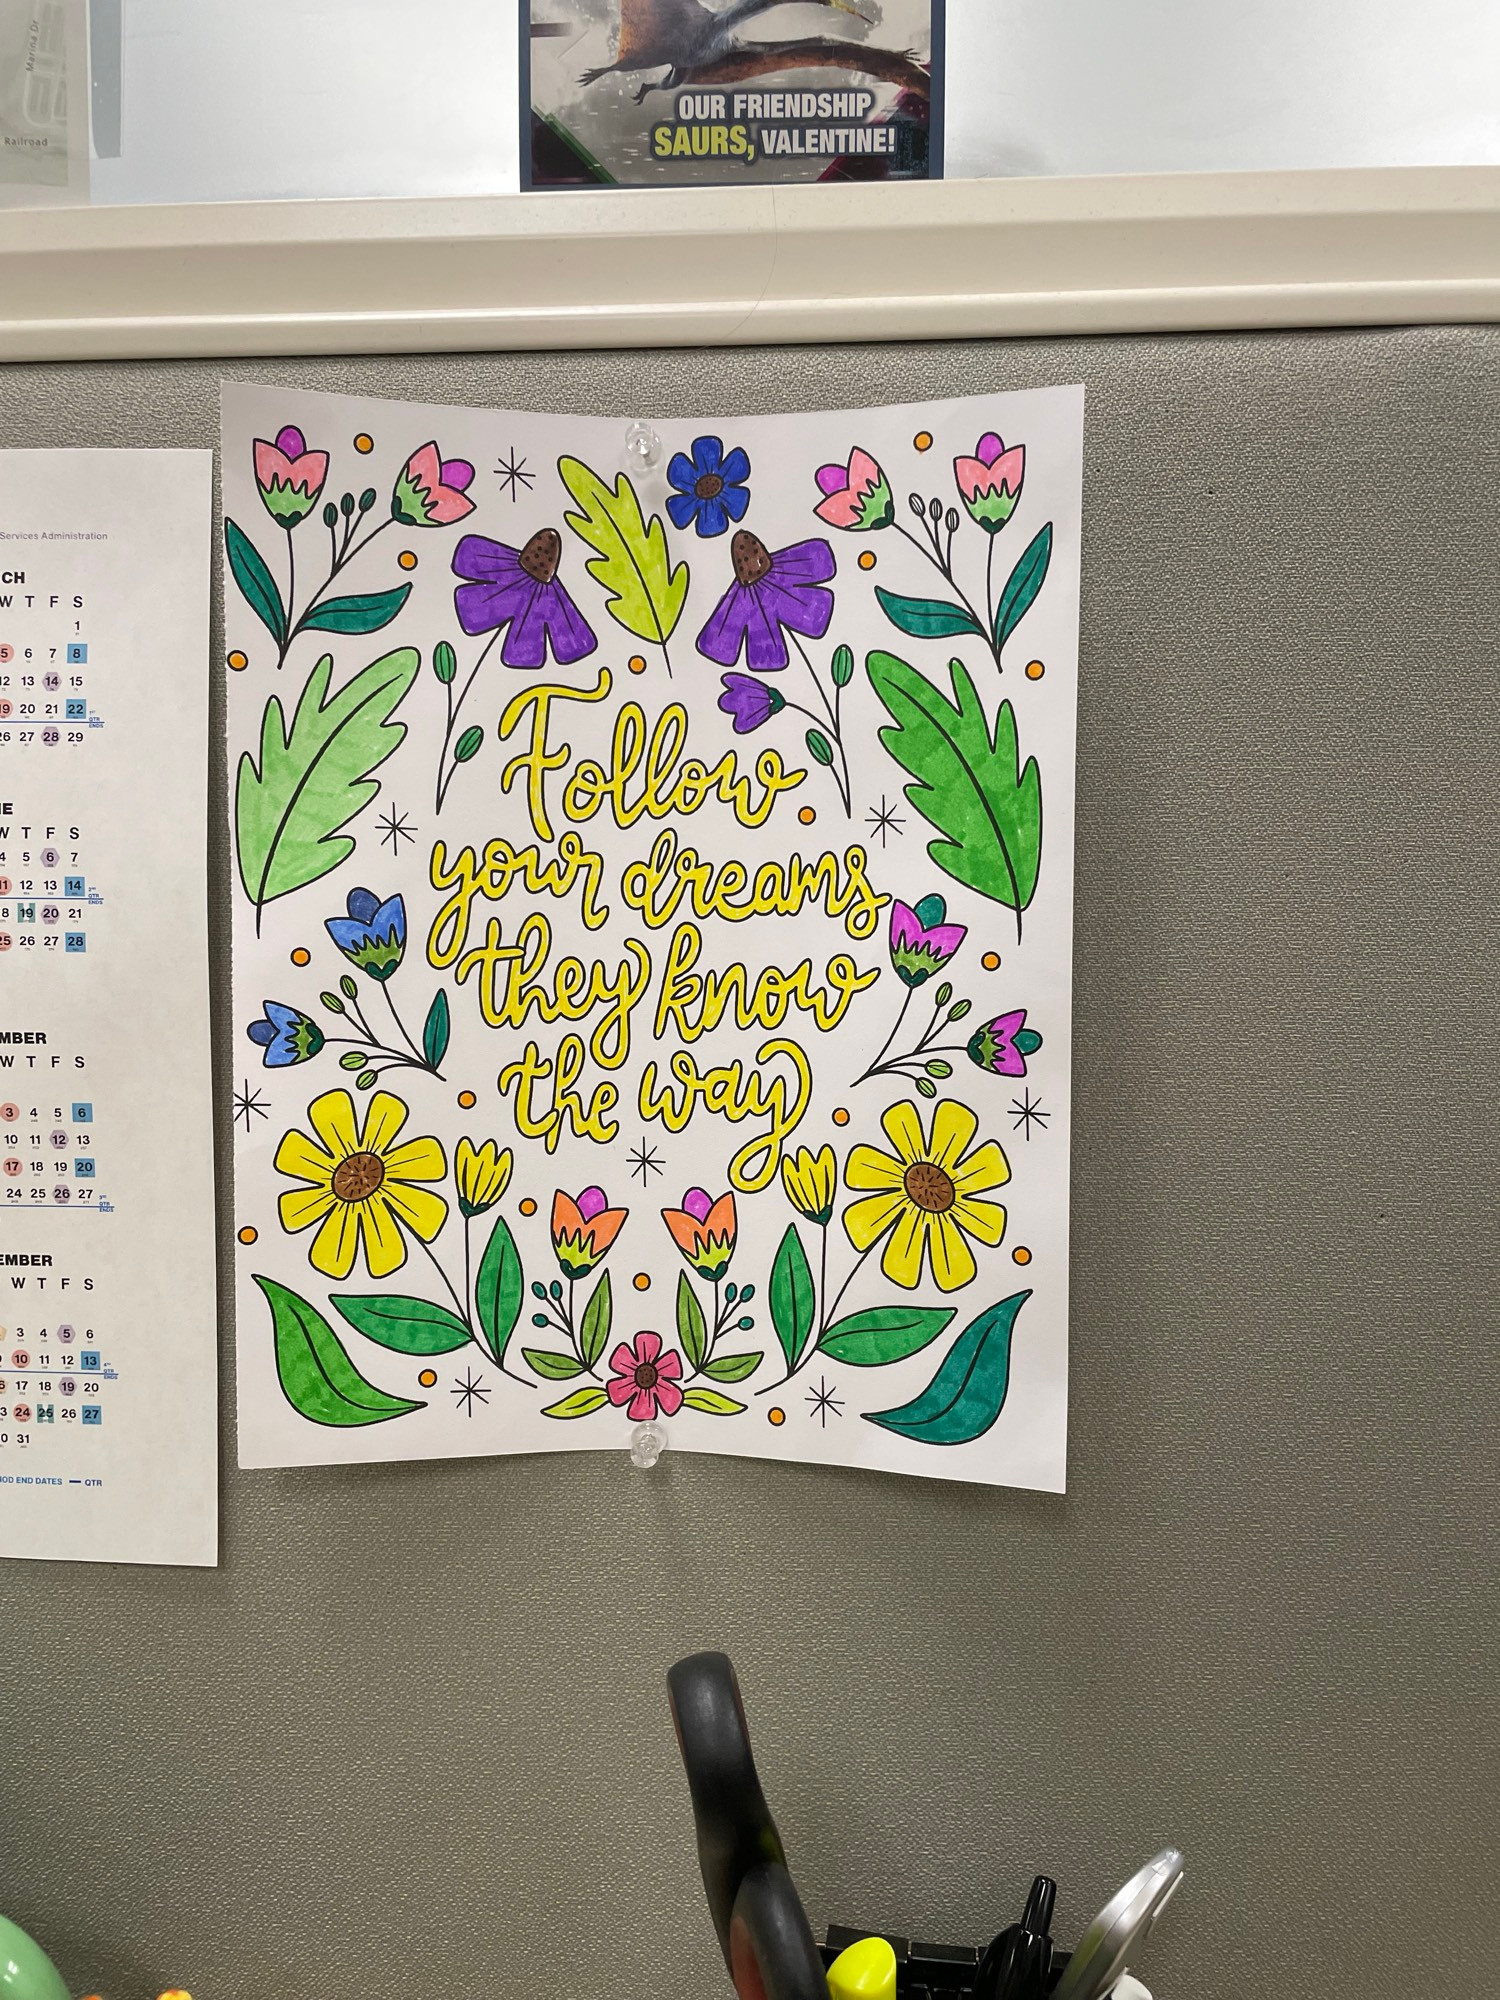 Marina Dr
Railroad
OUR FRIENDSHIP
SAURS, VALENTINE!
Follow
your dreams
they know
the way
Services Administration
CH
W T F S
1
5 6 7 8
12 13 14 15
19 20 21 22
26 27 28 29
W T F S
4 5 6 7
11 12 13 14
18 19 20 21
25 26 27 28
MBER
W T F S
3 4 5 6
10 11 12 13
17 18 19 20
24 25 26 27
EMBER
W T F S
3 4 5 6
10 11 12 13
17 18 19 20
24 25 26 27
31
OD END DATES — QTR